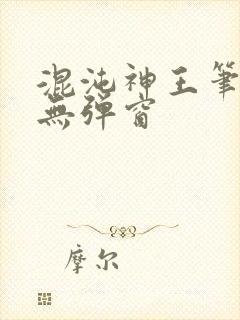 混沌神王筆
無彈窗
摩尔